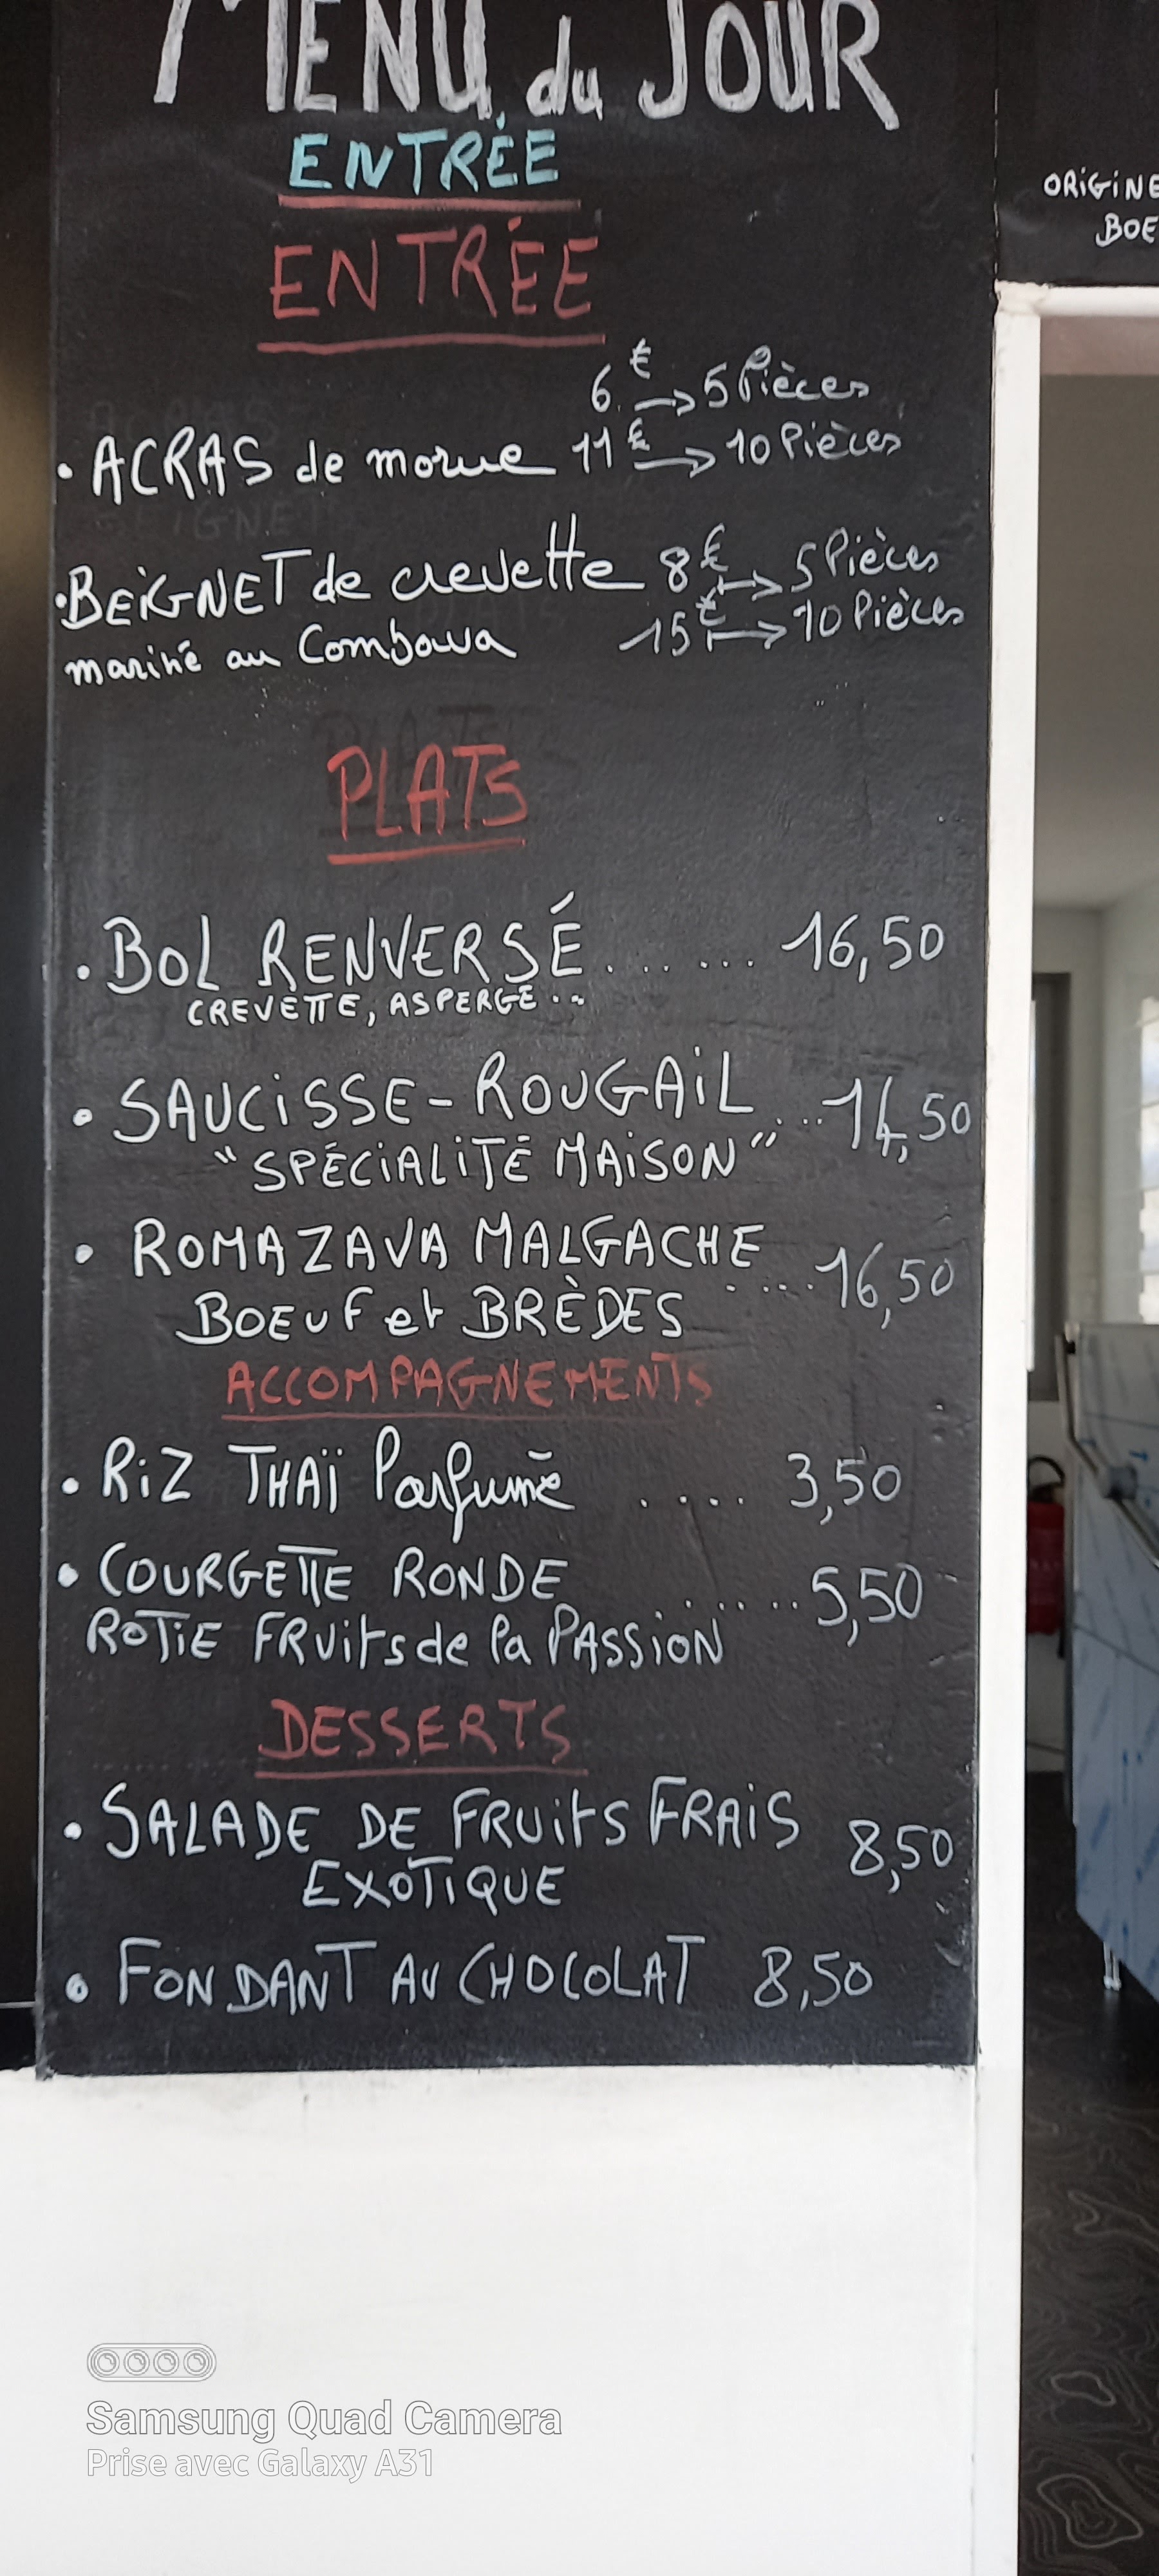 MENU du JOUR
ENTRÉE
ENTRÉE
6€ → 5 Pièces
• ACRAS de morue 11€ → 10 Pièces
• BEIGNET de crevette 8€ → 5 Pièces
mariné au Combawa 15€ → 10 Pièces
PLATS
• BOL RENVERSÉ ...... 16,50
CREVETTE, ASPERGE...
• SAUCISSE-ROUGAIL ... 14,50
"SPÉCIALITÉ MAISON"
• ROMAZAVA MALGACHE
BOEUF et BRÈDES ..... 16,50
ACCOMPAGNEMENTS
• RIZ THAÏ Parfumé .... 3,50
• COURGETTE RONDE ...... 5,50
ROTIE FRUITS de la PASSION
DESSERTS
• SALADE DE FRUITS FRAIS 8,50
EXOTIQUE
• FONDANT AU CHOCOLAT 8,50
ORIGINE
BOE
Samsung Quad Camera
Prise avec Galaxy A31